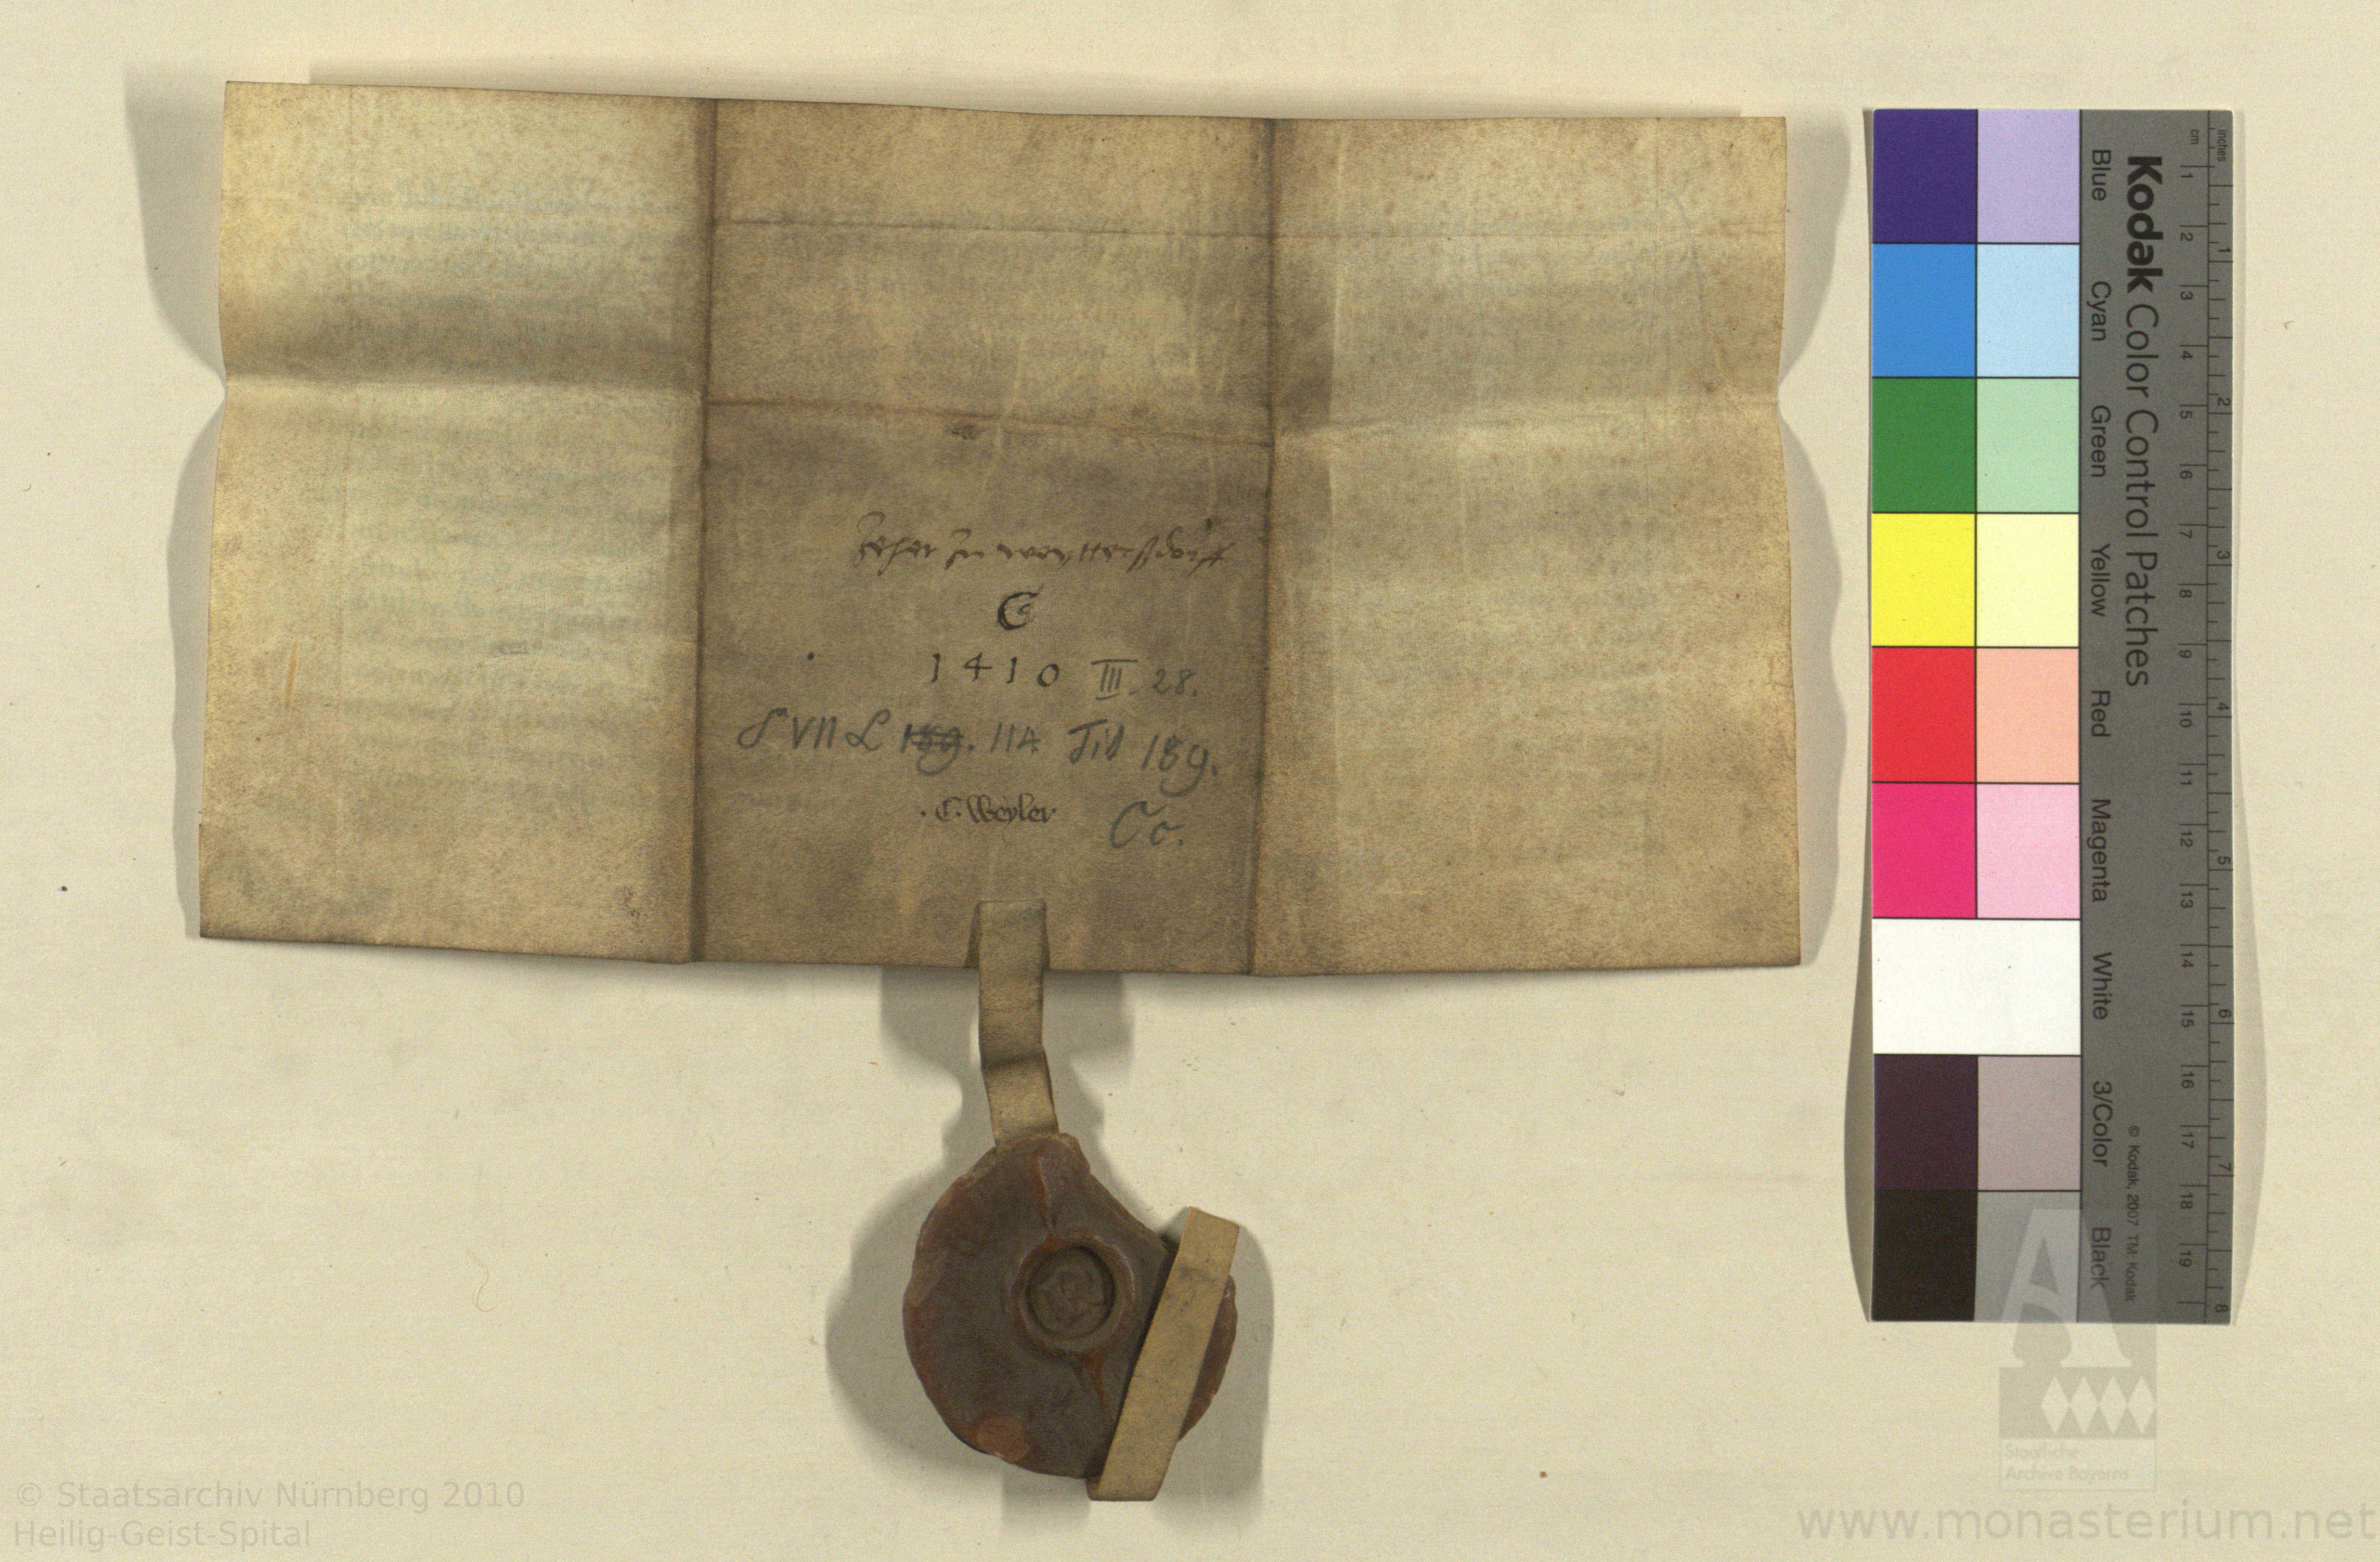 Zehet zu weyttersdorff
C
1410 III. 28.
S VII L 189. 114. Tit 189.
. C. Weyler Co.
Kodak Color Control Patches
Blue Cyan Green Yellow Red Magenta White 3/Color Black
© Kodak, 2007 TM: Kodak
cm 1 2 3 4 5 6 7 8 9 10 11 12 13 14 15 16 17 18 19
inches 1 2 3 4 5 6 7 8
Staatliche
Archive Bayerns
© Staatsarchiv Nürnberg 2010
Heilig-Geist-Spital
www.monasterium.net